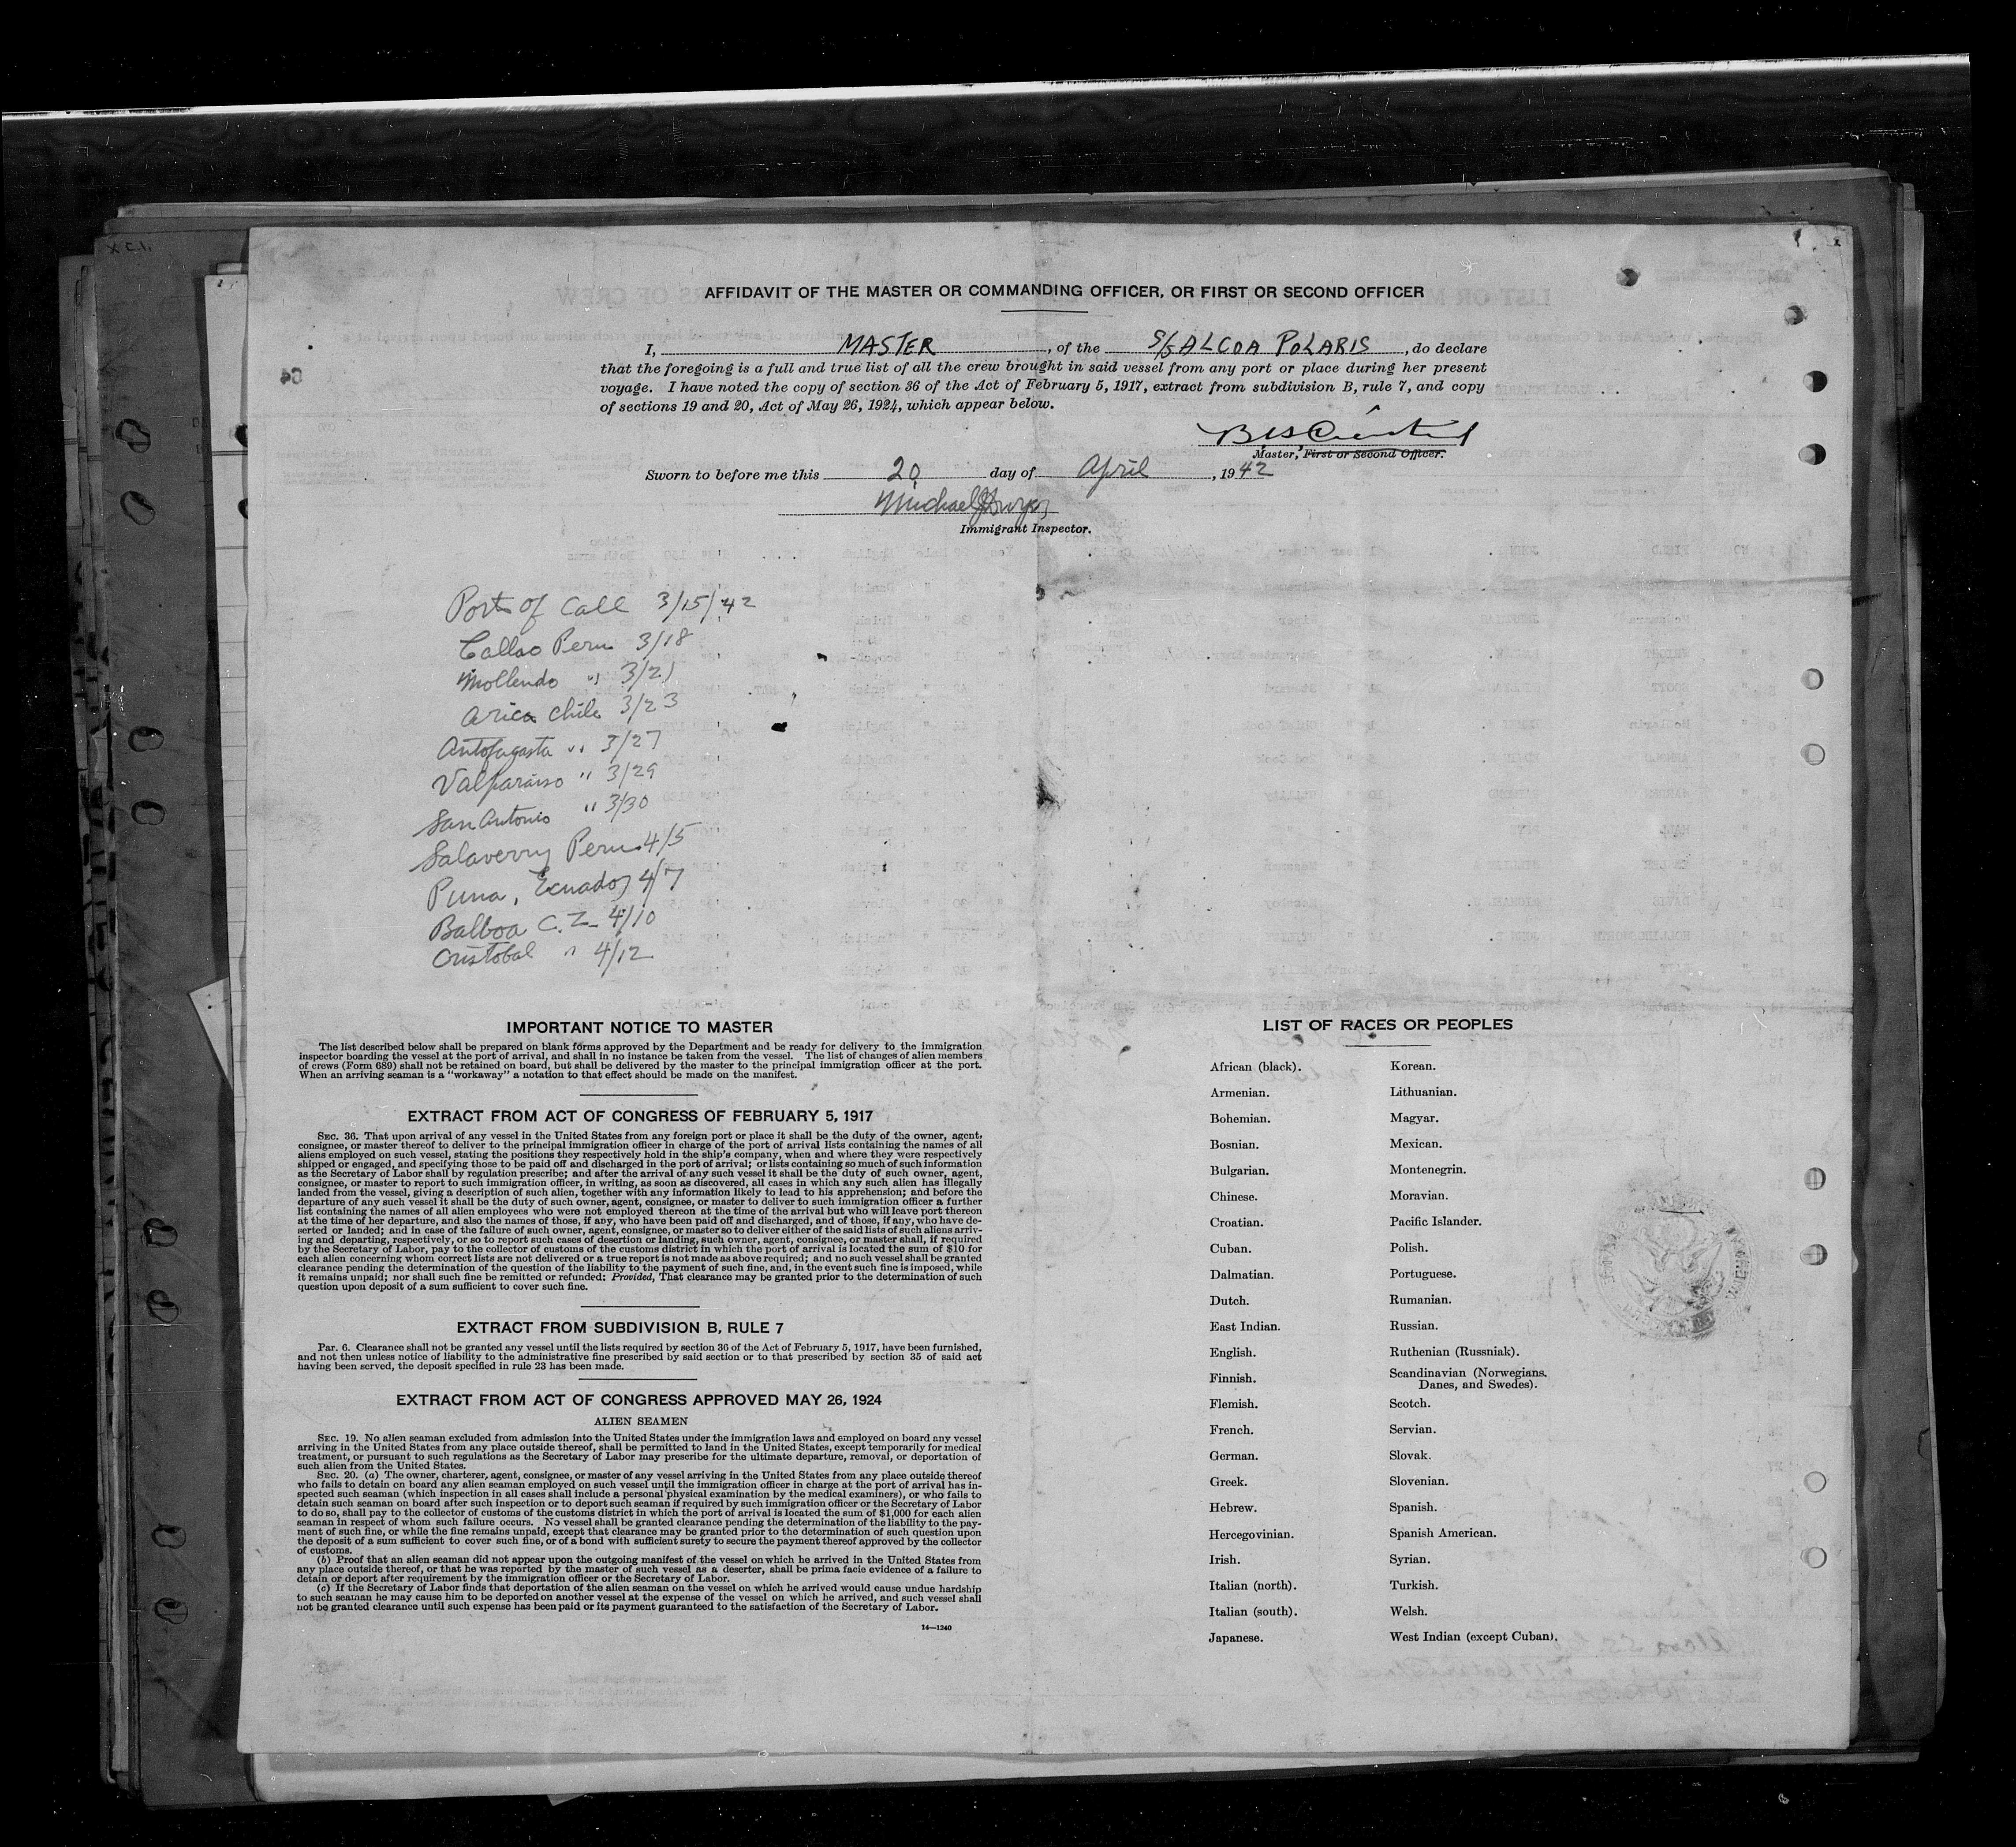 AFFIDAVIT OF THE MASTER OR COMMANDING OFFICER, OR FIRST OR SECOND OFFICER
I, MASTER, of the S/S ALCOA POLARIS, do declare
that the foregoing is a full and true list of all the crew brought in said vessel from any port or place during her present
voyage. I have noted the copy of section 36 of the Act of February 5, 1917, extract from subdivision B, rule 7, and copy
of sections 19 and 20, Act of May 26, 1924, which appear below.
Master, First or Second Officer.
Sworn to before me this 20 day of April, 1942
Michael
Immigrant Inspector.
Ports of Call 3/15/42
Callao Peru 3/18
Mollendo " 3/21
Arica Chile 3/23
Antofagasta " 3/27
Valparaiso " 3/29
San Antonio " 3/30
Salaverry Peru. 4/5
Puna, Ecuador 4/7
Balboa C.Z. 4/10
Cristobal " 4/12
IMPORTANT NOTICE TO MASTER
The list described below shall be prepared on blank forms approved by the Department and be ready for delivery to the immigration
inspector boarding the vessel at the port of arrival, and shall in no instance be taken from the vessel. The list of changes of alien members
of crews (Form 689) shall not be retained on board, but shall be delivered by the master to the principal immigration officer at the port.
When an arriving seaman is a "workaway" a notation to that effect should be made on the manifest.
EXTRACT FROM ACT OF CONGRESS OF FEBRUARY 5, 1917
SEC. 36. That upon arrival of any vessel in the United States from any foreign port or place it shall be the duty of the owner, agent,
consignee, or master thereof to deliver to the principal immigration officer in charge of the port of arrival lists containing the names of all
aliens employed on such vessel, stating the positions they respectively hold in the ship's company, when and where they were respectively
shipped or engaged, and specifying those to be paid off and discharged in the port of arrival; or lists containing so much of such information
as the Secretary of Labor shall by regulation prescribe; and after the arrival of any such vessel it shall be the duty of such owner, agent,
consignee, or master to report to such immigration officer, in writing, as soon as discovered, all cases in which any such alien has illegally
landed from the vessel, giving a description of such alien, together with any information likely to lead to his apprehension; and before the
departure of any such vessel it shall be the duty of such owner, agent, consignee, or master to deliver to such immigration officer a further
list containing the names of all alien employees who were not employed thereon at the time of the arrival but who will leave port thereon
at the time of her departure, and also the names of those, if any, who have been paid off and discharged, and of those, if any, who have de-
serted or landed; and in case of the failure of such owner, agent, consignee, or master so to deliver either of the said lists of such aliens arriv-
ing and departing, respectively, or so to report such cases of desertion or landing, such owner, agent, consignee, or master shall, if required
by the Secretary of Labor, pay to the collector of customs of the customs district in which the port of arrival is located the sum of $10 for
each alien concerning whom correct lists are not delivered or a true report is not made as above required; and no such vessel shall be granted
clearance pending the determination of the question of the liability to the payment of such fine, and, in the event such fine is imposed, while
it remains unpaid; nor shall such fine be remitted or refunded: Provided, That clearance may be granted prior to the determination of such
question upon deposit of a sum sufficient to cover such fine.
EXTRACT FROM SUBDIVISION B, RULE 7
Par. 6. Clearance shall not be granted any vessel until the lists required by section 36 of the Act of February 5, 1917, have been furnished,
and not then unless notice of liability to the administrative fine prescribed by said section or to that prescribed by section 35 of said act
having been served, the deposit specified in rule 23 has been made.
EXTRACT FROM ACT OF CONGRESS APPROVED MAY 26, 1924
ALIEN SEAMEN
SEC. 19. No alien seaman excluded from admission into the United States under the immigration laws and employed on board any vessel
arriving in the United States from any place outside thereof, shall be permitted to land in the United States, except temporarily for medical
treatment, or pursuant to such regulations as the Secretary of Labor may prescribe for the ultimate departure, removal, or deportation of
such alien from the United States.
SEC. 20. (a) The owner, charterer, agent, consignee, or master of any vessel arriving in the United States from any place outside thereof
who fails to detain on board any alien seaman employed on such vessel until the immigration officer in charge at the port of arrival has in-
spected such seaman (which inspection in all cases shall include a personal physical examination by the medical examiners), or who fails to
detain such seaman on board after such inspection or to deport such seaman if required by such immigration officer or the Secretary of Labor
to do so, shall pay to the collector of customs of the customs district in which the port of arrival is located the sum of $1,000 for each alien
seaman in respect of whom such failure occurs. No vessel shall be granted clearance pending the determination of the liability to the pay-
ment of such fine, or while the fine remains unpaid, except that clearance may be granted prior to the determination of such question upon
the deposit of a sum sufficient to cover such fine, or of a bond with sufficient surety to secure the payment thereof approved by the collector
of customs.
(b) Proof that an alien seaman did not appear upon the outgoing manifest of the vessel on which he arrived in the United States from
any place outside thereof, or that he was reported by the master of such vessel as a deserter, shall be prima facie evidence of a failure to
detain or deport after requirement by the immigration officer or the Secretary of Labor.
(c) If the Secretary of Labor finds that deportation of the alien seaman on the vessel on which he arrived would cause undue hardship
to such seaman he may cause him to be deported on another vessel at the expense of the vessel on which he arrived, and such vessel shall
not be granted clearance until such expense has been paid or its payment guaranteed to the satisfaction of the Secretary of Labor.
14—1240
LIST OF RACES OR PEOPLES
African (black).
Armenian.
Bohemian.
Bosnian.
Bulgarian.
Chinese.
Croatian.
Cuban.
Dalmatian.
Dutch.
East Indian.
English.
Finnish.
Flemish.
French.
German.
Greek.
Hebrew.
Hercegovinian.
Irish.
Italian (north).
Italian (south).
Japanese.
Korean.
Lithuanian.
Magyar.
Mexican.
Montenegrin.
Moravian.
Pacific Islander.
Polish.
Portuguese.
Rumanian.
Russian.
Ruthenian (Russniak).
Scandinavian (Norwegians,
Danes, and Swedes).
Scotch.
Servian.
Slovak.
Slovenian.
Spanish.
Spanish American.
Syrian.
Turkish.
Welsh.
West Indian (except Cuban).